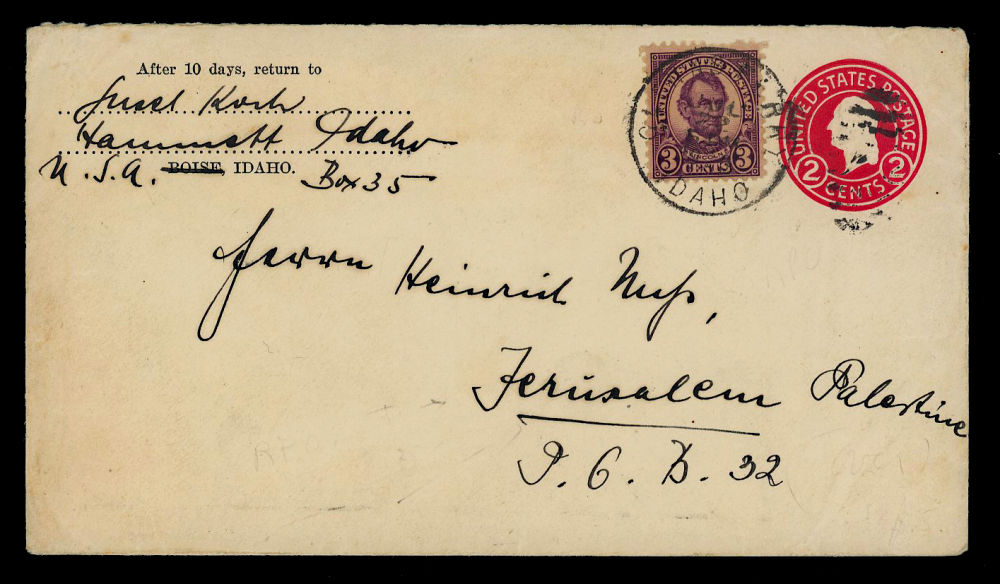 After 10 days, return to
Koch
Hammett Idaho
U.S.A. BOISE, IDAHO. Box 35
UNITED STATES POSTAGE
LINCOLN
3 CENTS 3
IDAHO
UNITED STATES POSTAGE
2 CENTS 2
Herrn Heinrich Nuß,
Jerusalem Palestine
P. O. B. 32